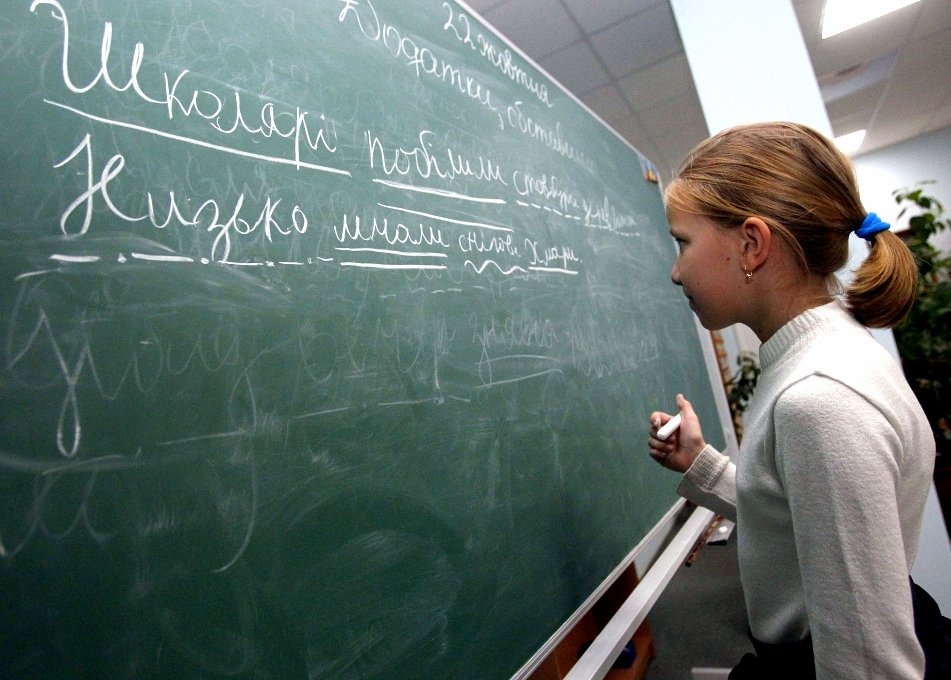 22 жовтня
Додатки, обставини
Школярі побілили стовбури дерев
Низько мчали снігові хмари.